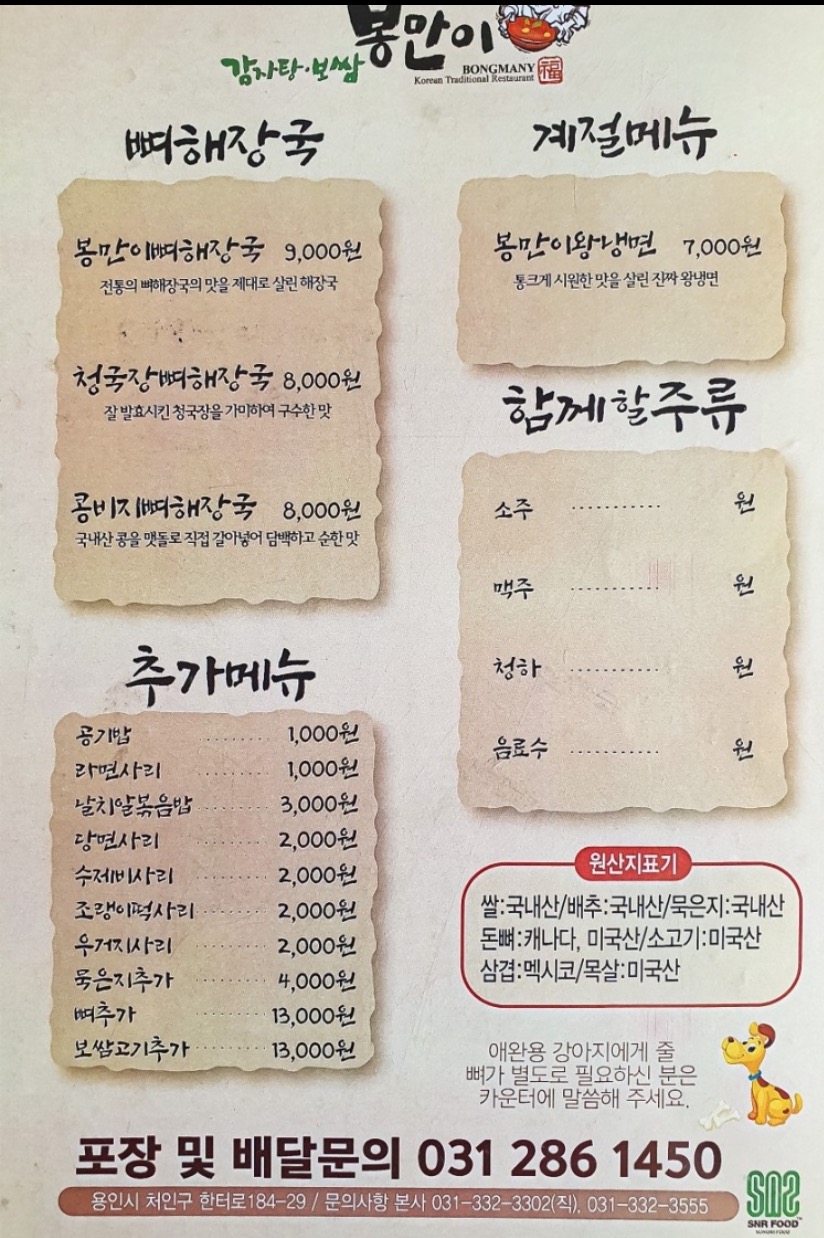 봉만이
감자탕·보쌈
BONGMANY
Korean Traditional Restaurant
福
뼈해장국
봉만이뼈해장국 9,000원
전통의 뼈해장국의 맛을 제대로 살린 해장국
청국장뼈해장국 8,000원
잘 발효시킨 청국장을 가미하여 구수한 맛
콩비지뼈해장국 8,000원
국내산 콩을 맷돌로 직접 갈아넣어 담백하고 순한 맛
추가메뉴
공기밥 ........... 1,000원
라면사리 ........... 1,000원
날치알볶음밥 ........... 3,000원
당면사리 ........... 2,000원
수제비사리 ........... 2,000원
조랭이떡사리 ........... 2,000원
우거지사리 ........... 2,000원
묵은지추가 ........... 4,000원
뼈추가 ........... 13,000원
보쌈고기추가 ........... 13,000원
계절메뉴
봉만이왕냉면 7,000원
통크게 시원한 맛을 살린 진짜 왕냉면
함께할주류
소주 ............ 원
맥주 ............ 원
청하 ............ 원
음료수 ............ 원
원산지표기
쌀:국내산/배추:국내산/묵은지:국내산
돈뼈:캐나다, 미국산/소고기:미국산
삼겹:멕시코/목살:미국산
애완용 강아지에게 줄
뼈가 별도로 필요하신 분은
카운터에 말씀해 주세요.
포장 및 배달문의 031 286 1450
용인시 처인구 한터로184-29 / 문의사항 본사 031-332-3302(직), 031-332-3555
SNR FOOD